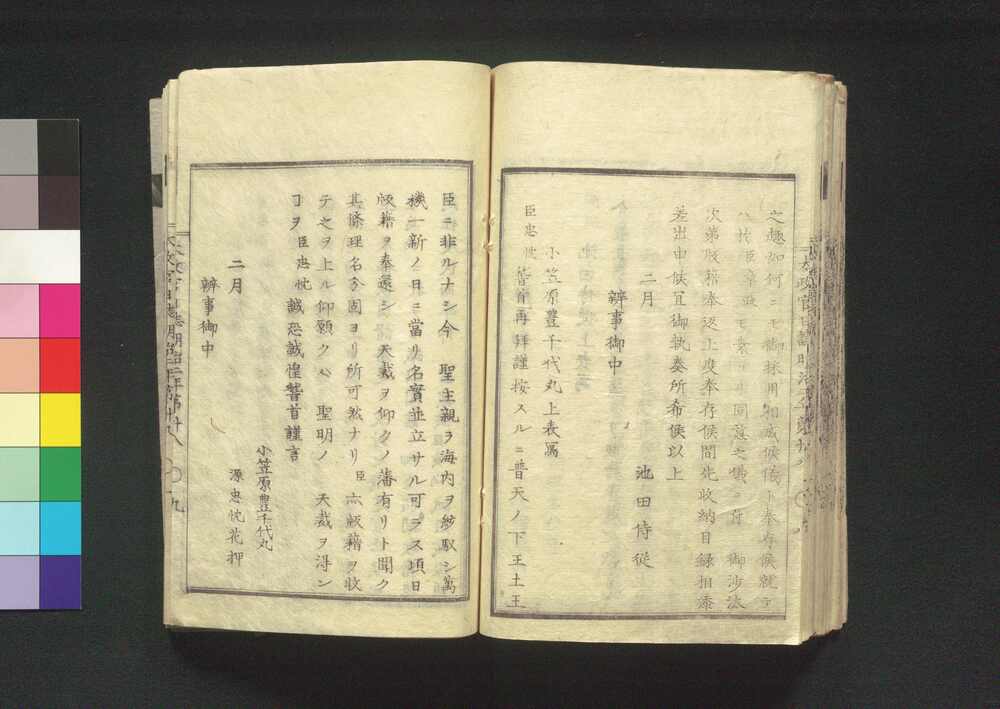 之趣如何ニモ御採用相成候儀ト奉存候就テ
ハ於臣章政モ素ヨリ同意之儀ニ付 御沙汰
次第版籍奉返上度奉存候間先收納目録相添
差出申候宜御執奏所希候以上
二月 池田侍從
辨事御中
小笠原豊千代丸上表寫
臣忠忱誓首再拜謹按スルニ普天ノ下王土王
臣ニ非ルナシ今 聖主親ヲ海内ヲ紗馭シ萬
機一新ノ日ニ當リ名實並立サル可ラス項日
版籍ヲ奉還シ 天裁ヲ仰クノ藩有リト聞ク
其條理名分固ヨリ所可然ナリ臣亦版籍ヲ收
テ之ヲ上ル仰願クハ 聖明ノ 天裁ヲ得ン
ヿヲ臣忠忱誠恐誠惶誓首謹言
小笠原豊千代丸
二月 源忠忱花押
辨事御中